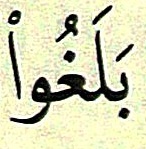 بَلَغُواْ